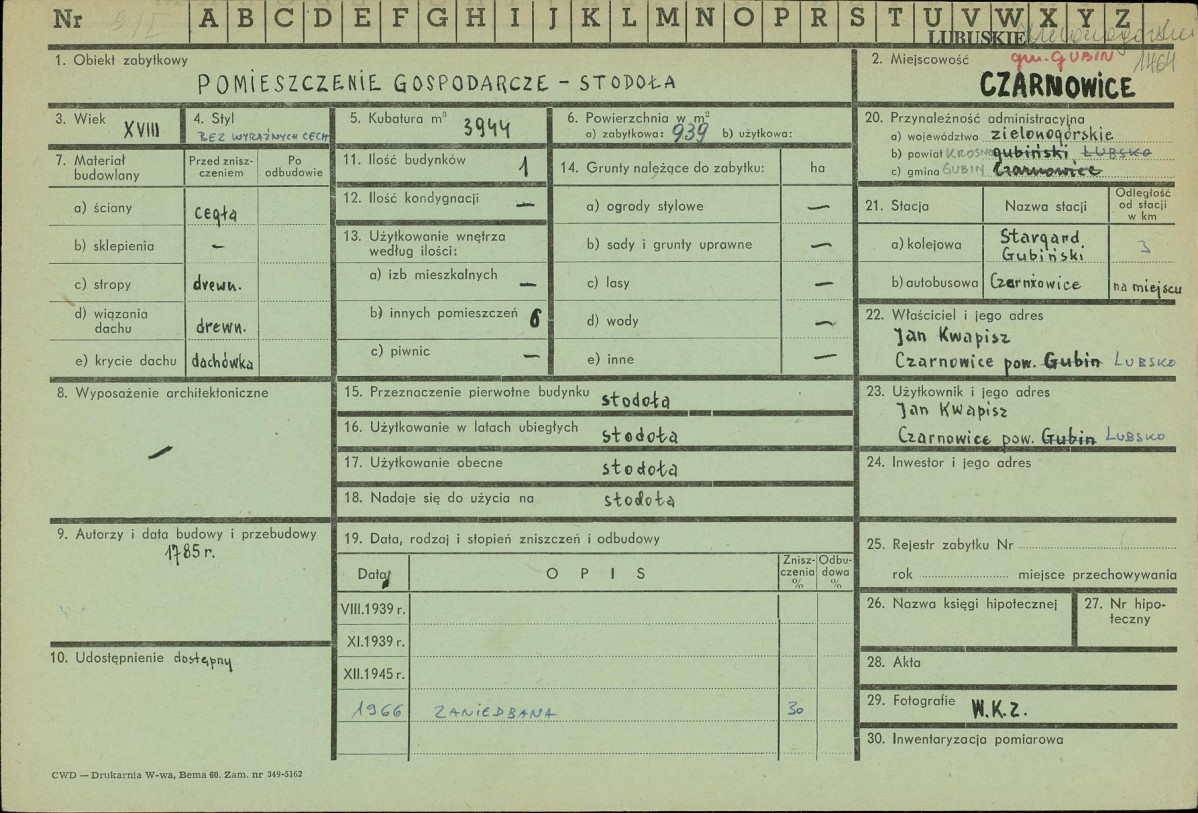 Nr A B C D E F G H I J K L M N O P R S T U V W X Y Z
LUBUSKIE
gm. GUBIN 1464
1. Obiekt zabytkowy
POMIESZCZENIE GOSPODARCZE – STODOŁA
2. Miejscowość
CZARNOWICE
3. Wiek XVIII
4. Styl
BEZ WYRAŹNYCH CECH
5. Kubatura m³ 3944
6. Powierzchnia w m²
a) zabytkowa: 939 b) użytkowa:
7. Materiał budowlany
Przed zniszczeniem
Po odbudowie
a) ściany cegła
b) sklepienia –
c) stropy drewn.
d) wiązania dachu drewn.
e) krycie dachu dachówka
8. Wyposażenie architektoniczne
–
9. Autorzy i data budowy i przebudowy
1785 r.
10. Udostępnienie dostępny
11. Ilość budynków 1
12. Ilość kondygnacji –
13. Użytkowanie wnętrza
według ilości:
a) izb mieszkalnych –
b) innych pomieszczeń 6
c) piwnic –
14. Grunty należące do zabytku: ha
a) ogrody stylowe –
b) sady i grunty uprawne –
c) lasy –
d) wody –
e) inne –
15. Przeznaczenie pierwotne budynku stodoła
16. Użytkowanie w latach ubiegłych stodoła
17. Użytkowanie obecne stodoła
18. Nadaje się do użycia na stodoła
19. Data, rodzaj i stopień zniszczeń i odbudowy
Data OPIS Zniszczenia % Odbudowa %
VIII.1939 r.
XI.1939 r.
XII.1945 r.
1966 ZANIEDBANA 30
20. Przynależność administracyjna
a) województwo zielonogórskie
b) powiat KROSNO gubiński LUBSKO
c) gmina GUBIN Czarnowice
21. Stacja Nazwa stacji Odległość od stacji w km
a) kolejowa Stargard Gubiński 3
b) autobusowa Czarnowice na miejscu
22. Właściciel i jego adres
Jan Kwapisz
Czarnowice pow. Gubin LUBSKO
23. Użytkownik i jego adres
Jan Kwapisz
Czarnowice pow. Gubin LUBSKO
24. Inwestor i jego adres
25. Rejestr zabytku Nr
rok miejsce przechowywania
26. Nazwa księgi hipotecznej
27. Nr hipoteczny
28. Akta
29. Fotografie W.K.Z.
30. Inwentaryzacja pomiarowa
CWD — Drukarnia W-wa, Bema 60. Zam. nr 349-5162